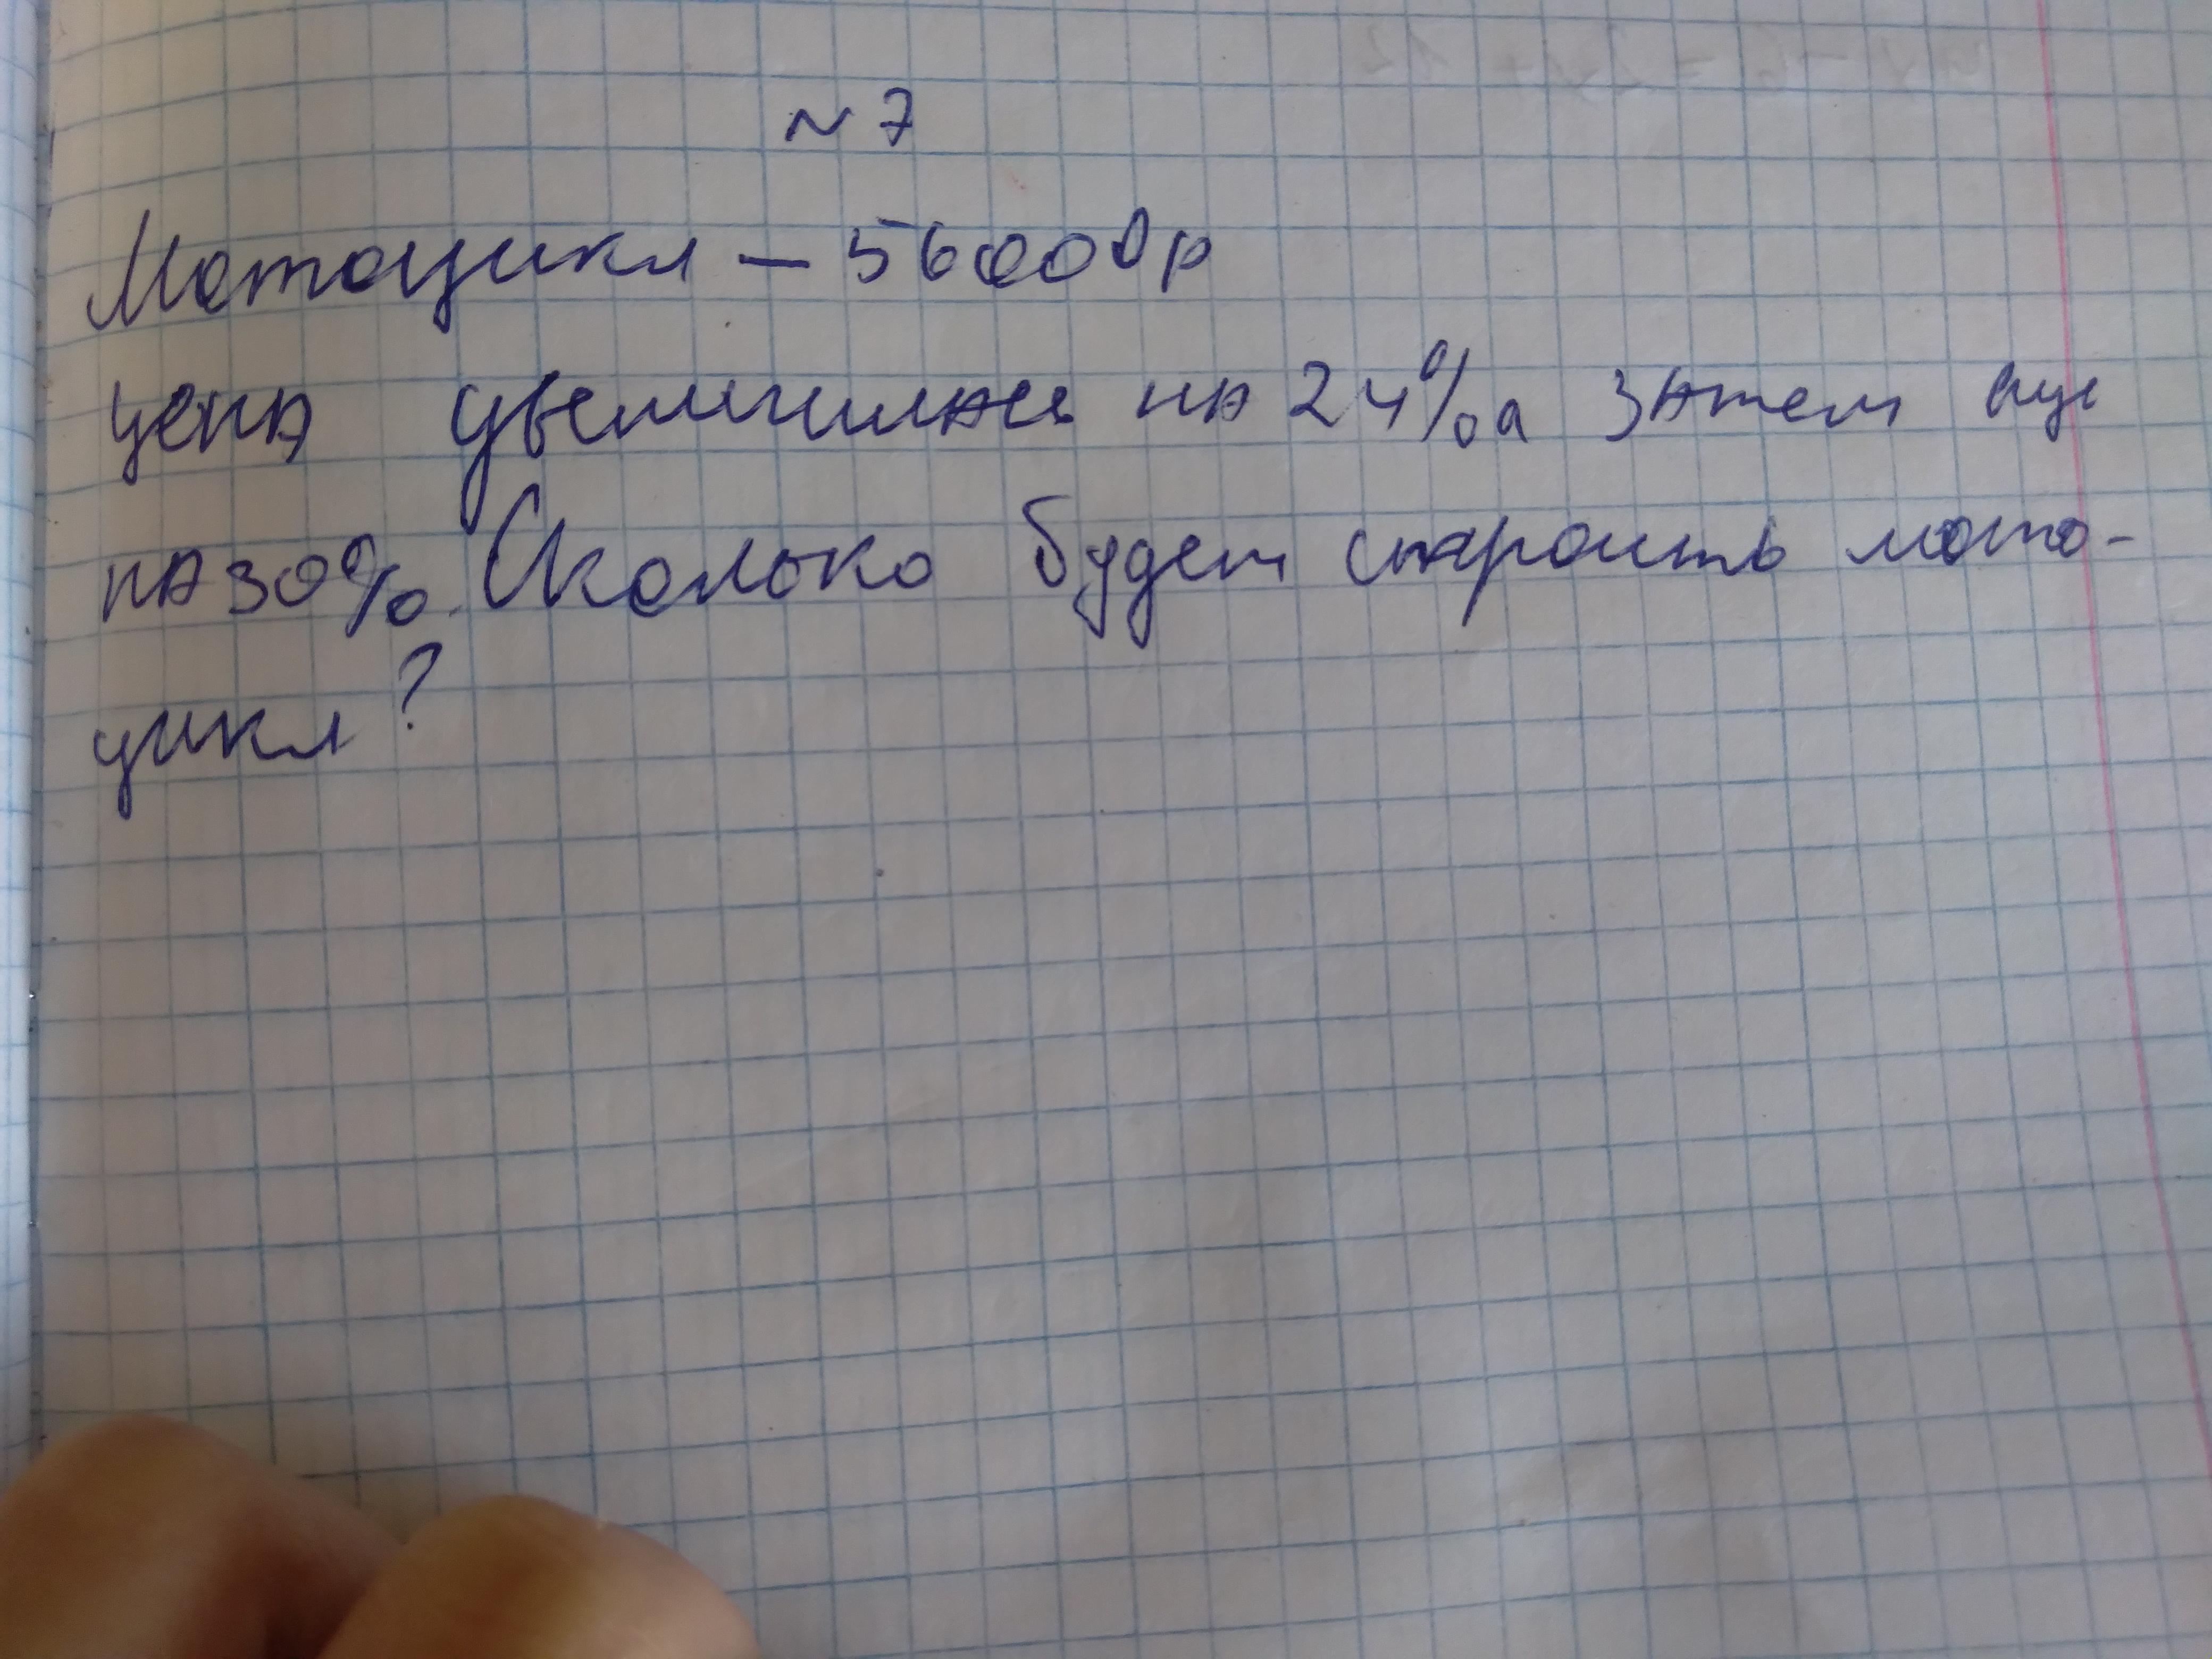 №7
Мотоцикл — 56000р
цена увеличилась на 24% а затем еще
на 30%. Сколько будет староить мото-
цикл?